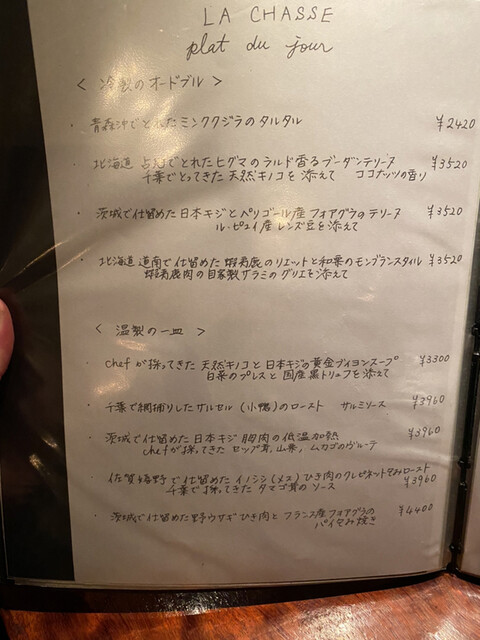 LA CHASSE
plat du jour
< 冷製のオードブル >
・ 青森沖でとれたミンククジラのタルタル ¥2420
・ 北海道 占冠でとれたヒグマのラルド香るブーダンテリーヌ ¥3520
千葉でとってきた天然キノコを添えて ココナッツの香り
・ 茨城で仕留めた日本キジとペリゴール産フォアグラのテリーヌ ¥3520
ル・ピュイ産レンズ豆を添えて
・ 北海道 道南で仕留めた蝦夷鹿のリエットと和栗のモンブランスタイル ¥3520
蝦夷鹿肉の自家製サラミのグリエを添えて
< 温製の一皿 >
・ chefが採ってきた天然キノコと日本キジの黄金ブイヨンスープ ¥3300
白菜のプレスと国産黒トリュフを添えて
・ 千葉で網捕りしたサルセル(小鴨)のロースト サルミソース ¥3960
・ 茨城で仕留めた日本キジ胸肉の低温加熱 ¥3960
chefが採ってきたセップ茸、山栗、ムカゴのヴルーテ
・ 佐賀嬉野で仕留めたイノシシ(メス)ひき肉のクレピネット包みロースト
千葉で採ってきたタマゴ茸のソース ¥3960
・ 茨城で仕留めた野ウサギひき肉とフランス産フォアグラの ¥4400
パイ包み焼き